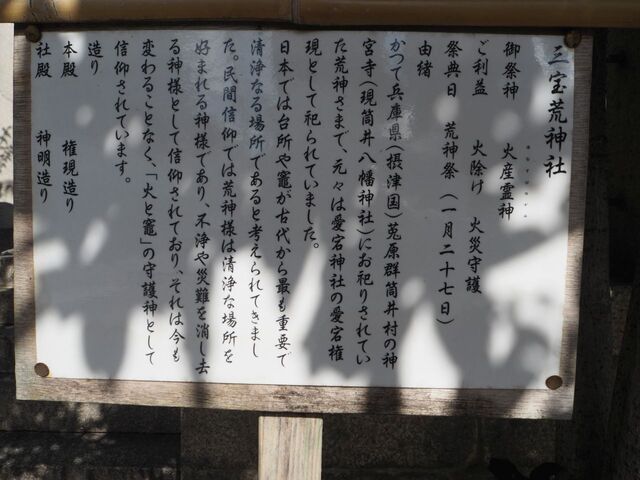 三宝荒神社
御祭神　火産霊神
ご利益　火除け　火災守護
祭典日　荒神祭（一月二十七日）
由緒
かつて兵庫県（摂津国）莵原群筒井村の神
宮寺（現筒井八幡神社）にお祀りされてい
た荒神さまで、元々は愛宕神社の愛宕権
現として祀られていました。
日本では台所や竈が古代から最も重要で
清浄なる場所であると考えられてきまし
た。民間信仰では荒神様は清浄な場所を
好まれる神様であり、不浄や災難を消し去
る神様として信仰されており、それは今も
変わることなく、「火と竈」の守護神として
信仰されています。
造り
本殿　権現造り
社殿　神明造り